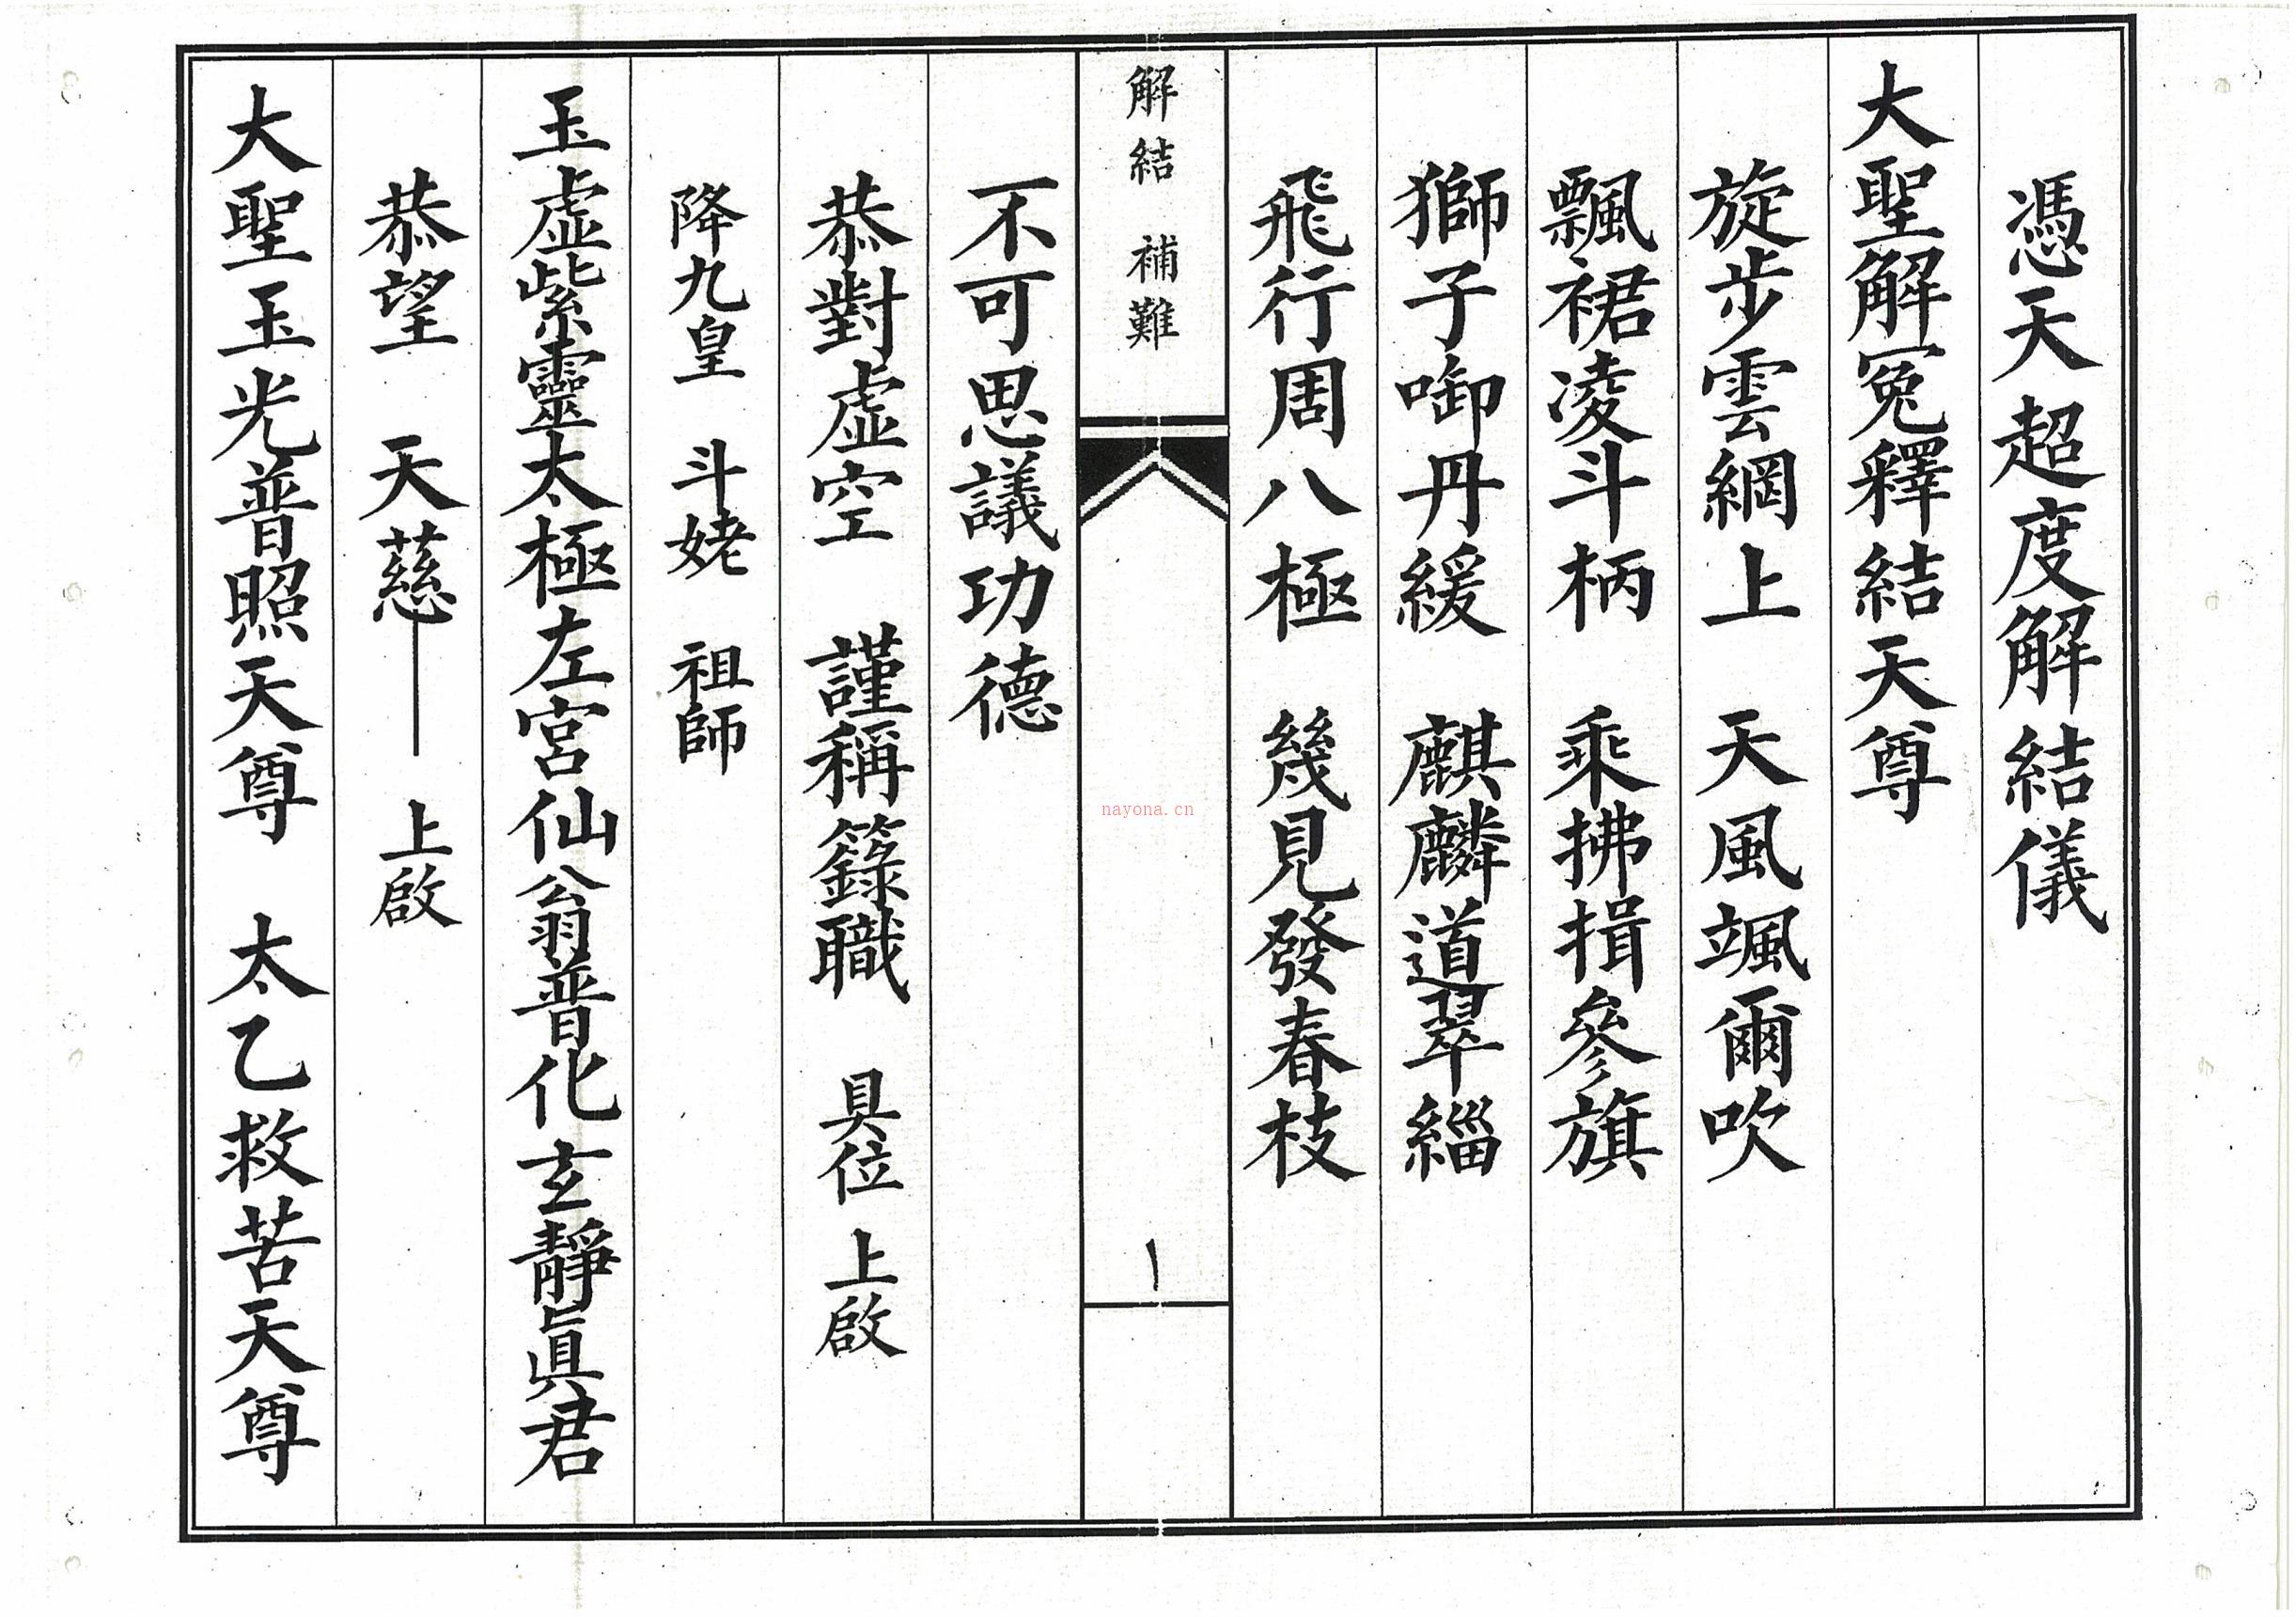 憑天超度解結儀
大聖解冤釋結天尊
旋步雲綱上　天風颯爾吹
飄裙凌斗柄　乘拂揖參旗
獅子啣丹綬　麒麟道翠緇
飛行周八極　幾見發春枝
解結　補難
一
nayona.cn
不可思議功德
恭對虛空　謹稱籙職　具位　上啟
降九皇　斗姥　祖師
玉虛紫靈太極左宮仙翁普化玄靜眞君
恭望　天慈——上啟
大聖玉光普照天尊　太乙救苦天尊